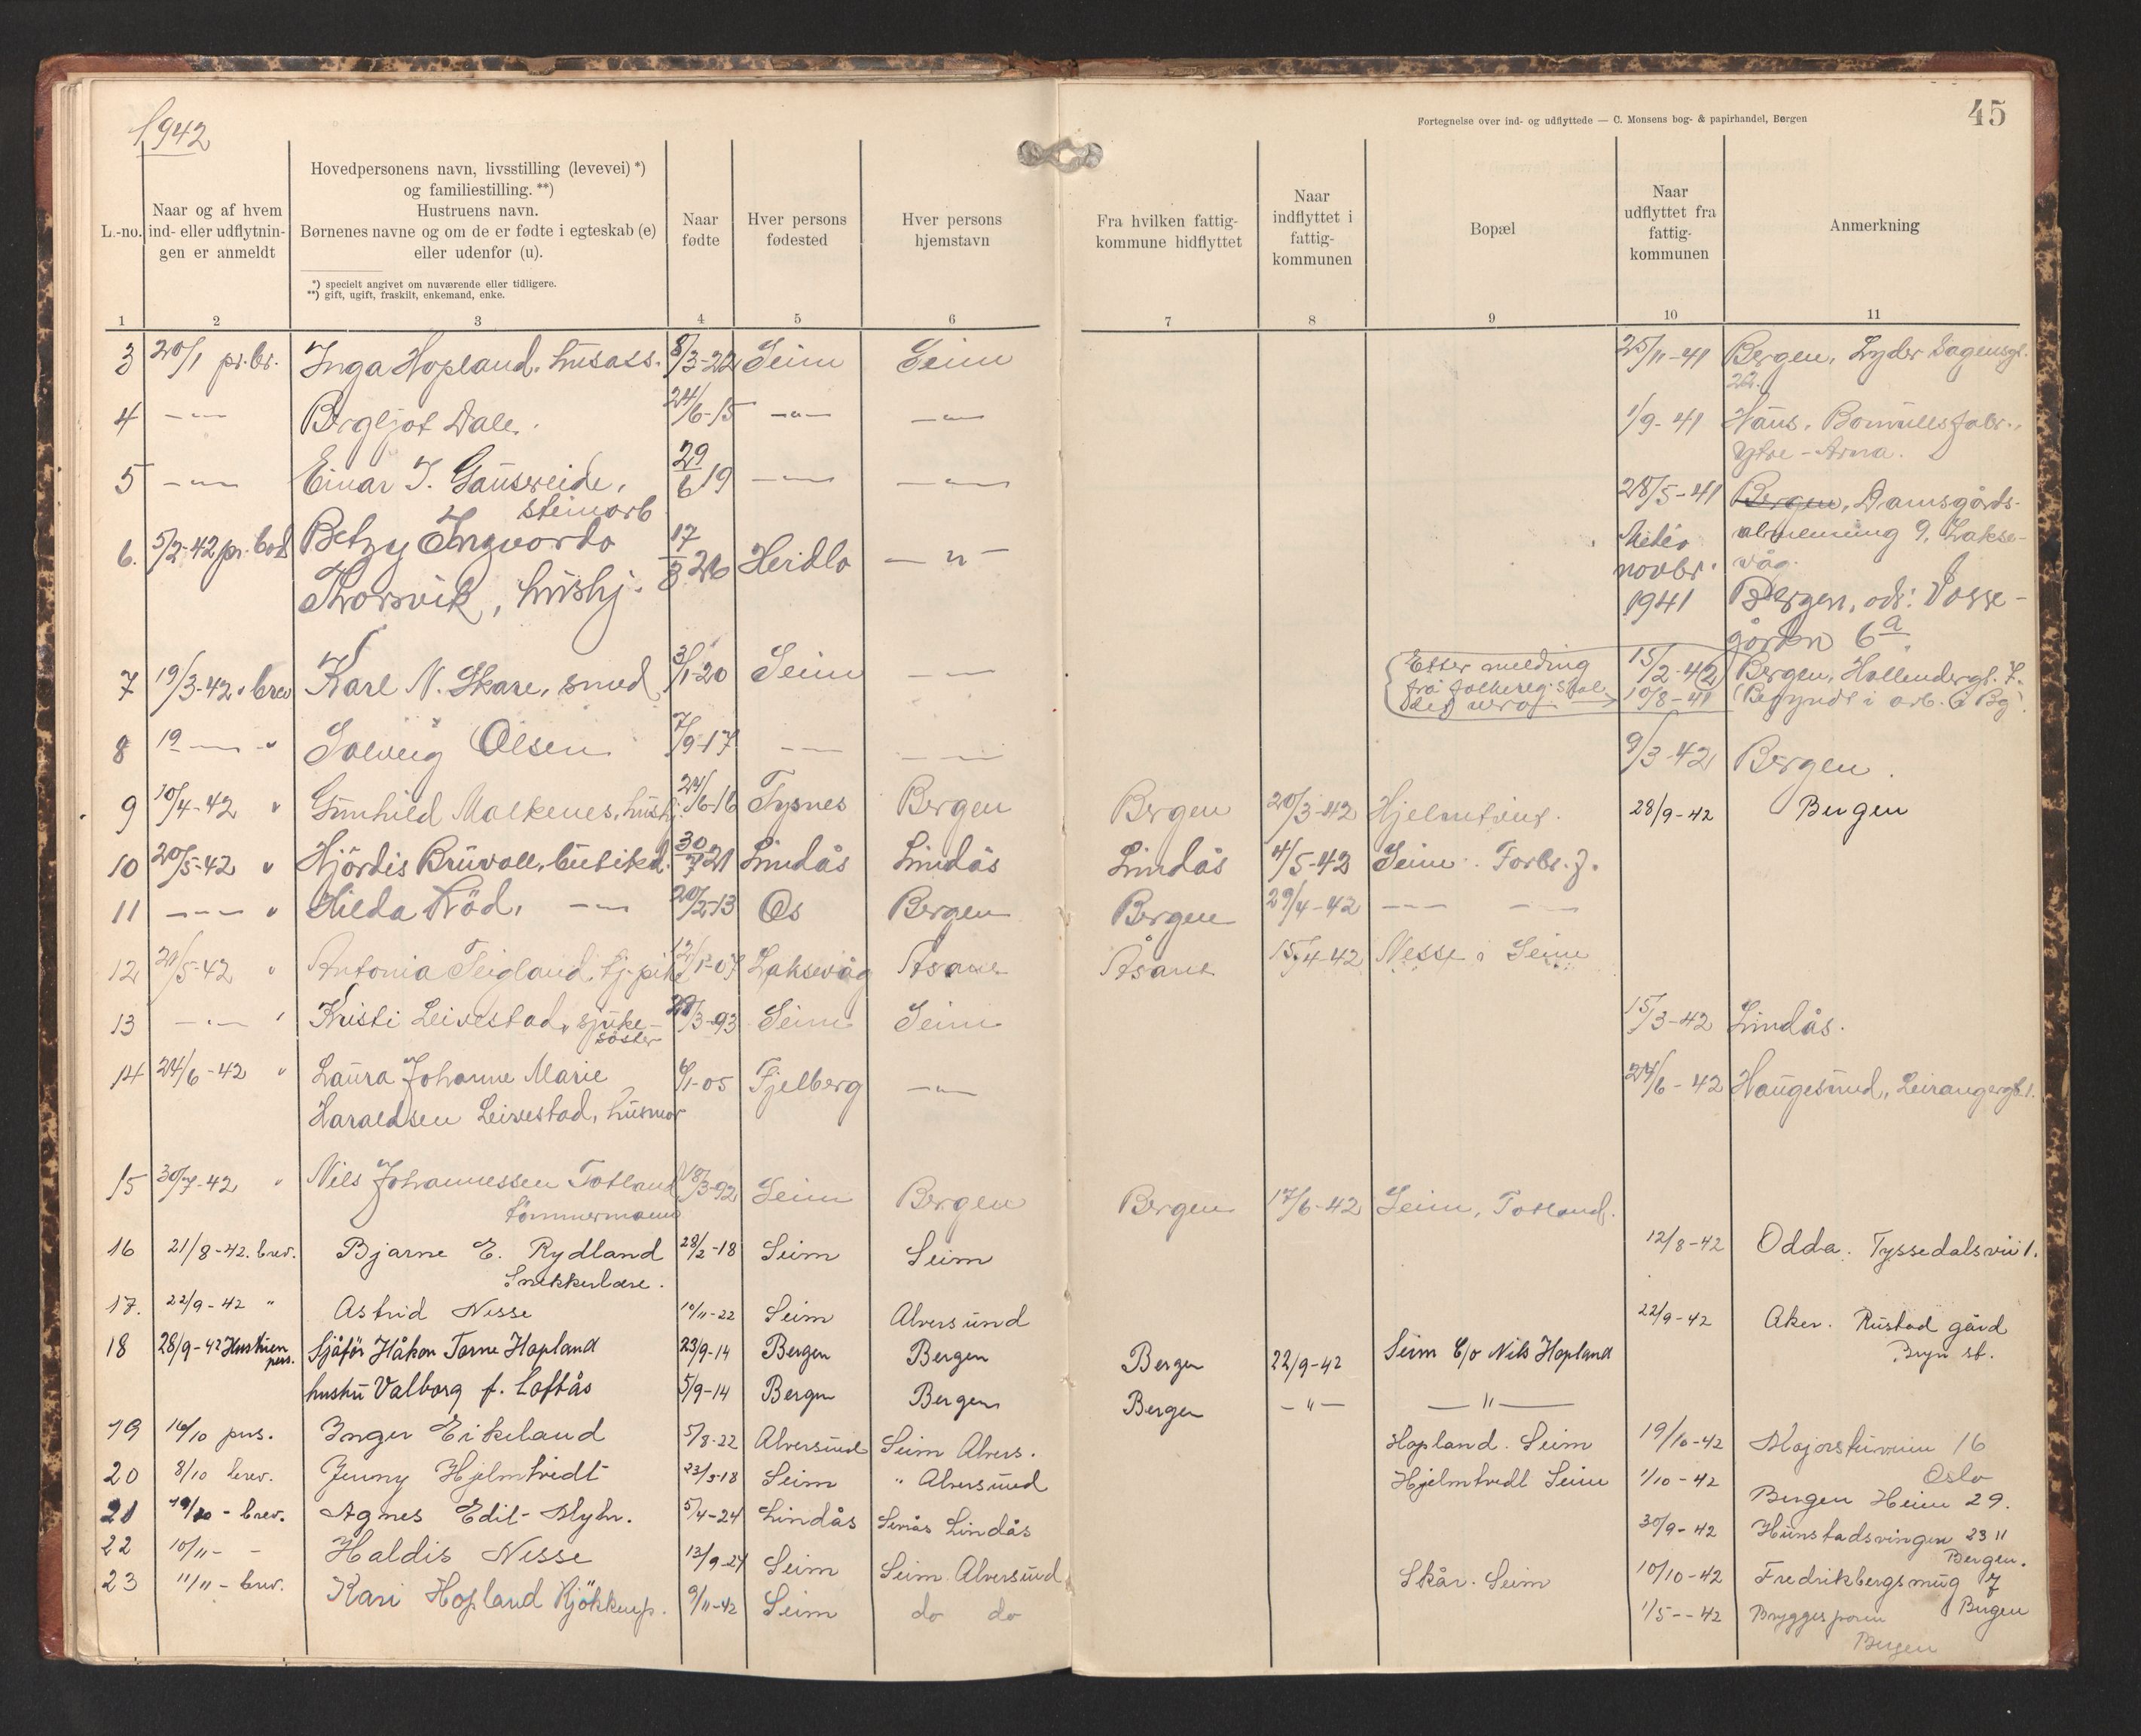 1942
45
Fortegnelse over ind- og udflyttede — C. Monsens bog- & papirhandel, Bergen
L.-no.
Naar og af hvem ind- eller udflytnin- gen er anmeldt
Hovedpersonens navn, livsstilling (levevei) *)
og familiestilling. **)
Hustruens navn.
Børnenes navne og om de er fødte i egteskab (e)
eller udenfor (u).
*) specielt angivet om nuværende eller tidligere.
**) gift, ugift, fraskilt, enkemand, enke.
Naar fødte
Hver persons fødested
Hver persons hjemstavn
Fra hvilken fattig- kommune hidflyttet
Naar indflyttet i fattig- kommunen
Bopæl
Naar udflyttet fra fattig- kommunen
Anmerkning
1 2 3 4 5 6 7 8 9 10 11
3 20/1 pr. br. Inga Hopland, husass. 8/3-22 Seim Seim 25/11-41 Bergen, Lyder Sagensgt.
22.
4 — " — Bergljot Dale. 24/6-15 — " — — " — 1/9-41 Haus, Bomullsfabr.,
Ytre-Arna.
5 — " — Einar J. Gausereide, 29/6 19 — " — — " — 28/5-41 Bergen, Damsgårds-
steinarb
almenning 9, Lakse-
våg.
6. 5/2-42 pr. bod Betzy Ingvarda 17/3 26 Herdla — " — novbr.
Thorsvik, hushj. 1941 Bergen, adr: Vosse-
gården 6a.
7 19/3-42 " brev Karl N. Skare, smed 3/1-20 Seim — — Etter melding 15/2-42 Bergen, Hollendergt. 7.
fra folkereg. skal
10/8-41 (Begyndt i arb. i Bg).
8 19 — " Solveig Olsen 7/9-17 — — — — 9/3-42 Bergen.
9 10/4-42 " Gunhild Malkenes, hushj. 24/6-16 Tysnes Bergen Bergen 20/3-42 28/9-42 Bergen
10 20/5-42 " Hjördis Bruvoll, butikd. 30/7 21 Lindås Lindås Lindås 4/5-42 Seim Forbr.f.
11 — — — " Hilda Röd, — " — 20/2-13 Os Bergen Bergen 29/4-42 — — — —
12 21/5-42 " Antonia Teigland, tj.pike 12/1-07 Laksevåg Åsane Åsane 15/4-42 Nesse i Seim
13 — " — " Kristi Leivestad, sjuke- 28/3-93 Seim Seim 15/3-42 Lindås.
söster
14 24/6-42 " Laura Johanne Marie 6/1-05 Fjelberg — " — 24/6-42 Haugesund,
Haraldsen Leivestad, husmor
15 30/7-42 " Nils Johannessen Totland 18/3-92 Seim Bergen Bergen 17/6-42 Seim, Totland.
tömmermann
16 21/8-42. brev. Bjarne E. Rydland 28/2-18 Seim Seim 12/8-42 Odda. Tyssedalsvei 1.
Snekkerlære.
17. 22/9-42 " Astrid Nesse 10/11-22 Seim Alversund 22/9-42 Aker. Rustad gård
Bryn st.
18 28/9-42 Hustruen pers. Sjåför Håkon Torne Hopland 23/9-14 Bergen Bergen Bergen 22/9-42 Seim C/o Nils Hopland
hustru Valborg f. Loftås 5/9-14 Bergen Bergen Bergen — " — — " —
19 16/10 pers. Inger Eikeland 5/8-22 Alversund Seim Alvers. Hopland. Seim 19/10-42 Majorstuveien 16
Oslo
20 8/10 brev. Jenny Hjelmtvedt 23/3-18 Seim " Alversund Hjelmtvedt Seim 1/10-42 Bergen Heien 29.
21 19/10 - brev. Agnes Edit Myhr. 5/4-24 Lindås Seim Lindås 30/9-42 Hunstadsvingen 23 II
Bergen.
22 10/11- - Haldis Nesse 13/9-24 Seim Seim Alversund Skår. Seim 10/10-42 Fredrikbergsmug 7
Bergen
23 11/11 - brev. Kari Hopland Kjökkenp. 9/11-42 Seim do do 1/5--42
Bergen